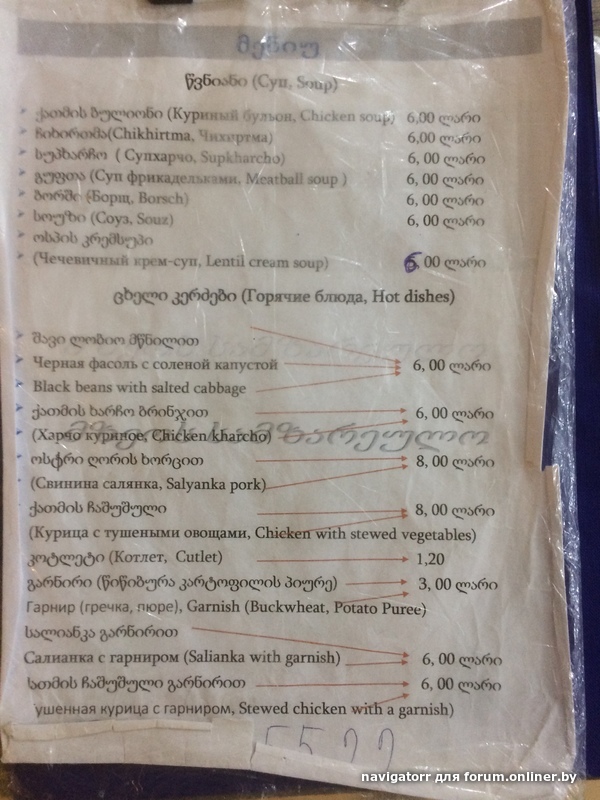 მენიუ
წვნიანი (Суп, Soup)
ქათმის ბულიონი (Куриный бульон, Chicken soup) 6,00 ლარი
ჩიხირთმა(Chikhirtma, Чихиртма) 6,00 ლარი
სუპხარჩო ( Супхарчо, Supkharcho) 6, 00 ლარი
გუფთა (Суп фрикадельками, Meatball soup ) 6, 00 ლარი
ბორში (Борщ, Borsch) 6, 00 ლარი
სოუზი (Соуз, Souz) 6, 00 ლარი
ოსპის კრემსუპი
(Чечевичный крем-суп, Lentil cream soup) 6, 00 ლარი
ცხელი კერძები (Горячие блюда, Hot dishes)
შავი ლობიო მწნილით
Черная фасоль с соленой капустой 6, 00 ლარი
Black beans with salted cabbage
ქათმის ხარჩო ბრინჯით 6, 00 ლარი
(Харчо куриное, Chicken kharcho)
ოსტრი ღორის ხორცით 8, 00 ლარი
(Свинина салянка, Salyanka pork)
ქათმის ჩაშუშული 8, 00 ლარი
(Курица с тушеными овощами, Chicken with stewed vegetables)
კოტლეტი (Котлет, Cutlet) 1,20
გარნირი (წიწიბურა კარტოფილის პიურე) 3, 00 ლარი
Гарнир (гречка, пюре), Garnish (Buckwheat, Potato Puree)
სალიანკა გარნირით
Салианка с гарниром (Salianka with garnish) 6, 00 ლარი
სთმის ჩაშუშული გარნირით 6, 00 ლარი
ушенная курица с гарниром, Stewed chicken with a garnish)
navigatorr для forum.onliner.by